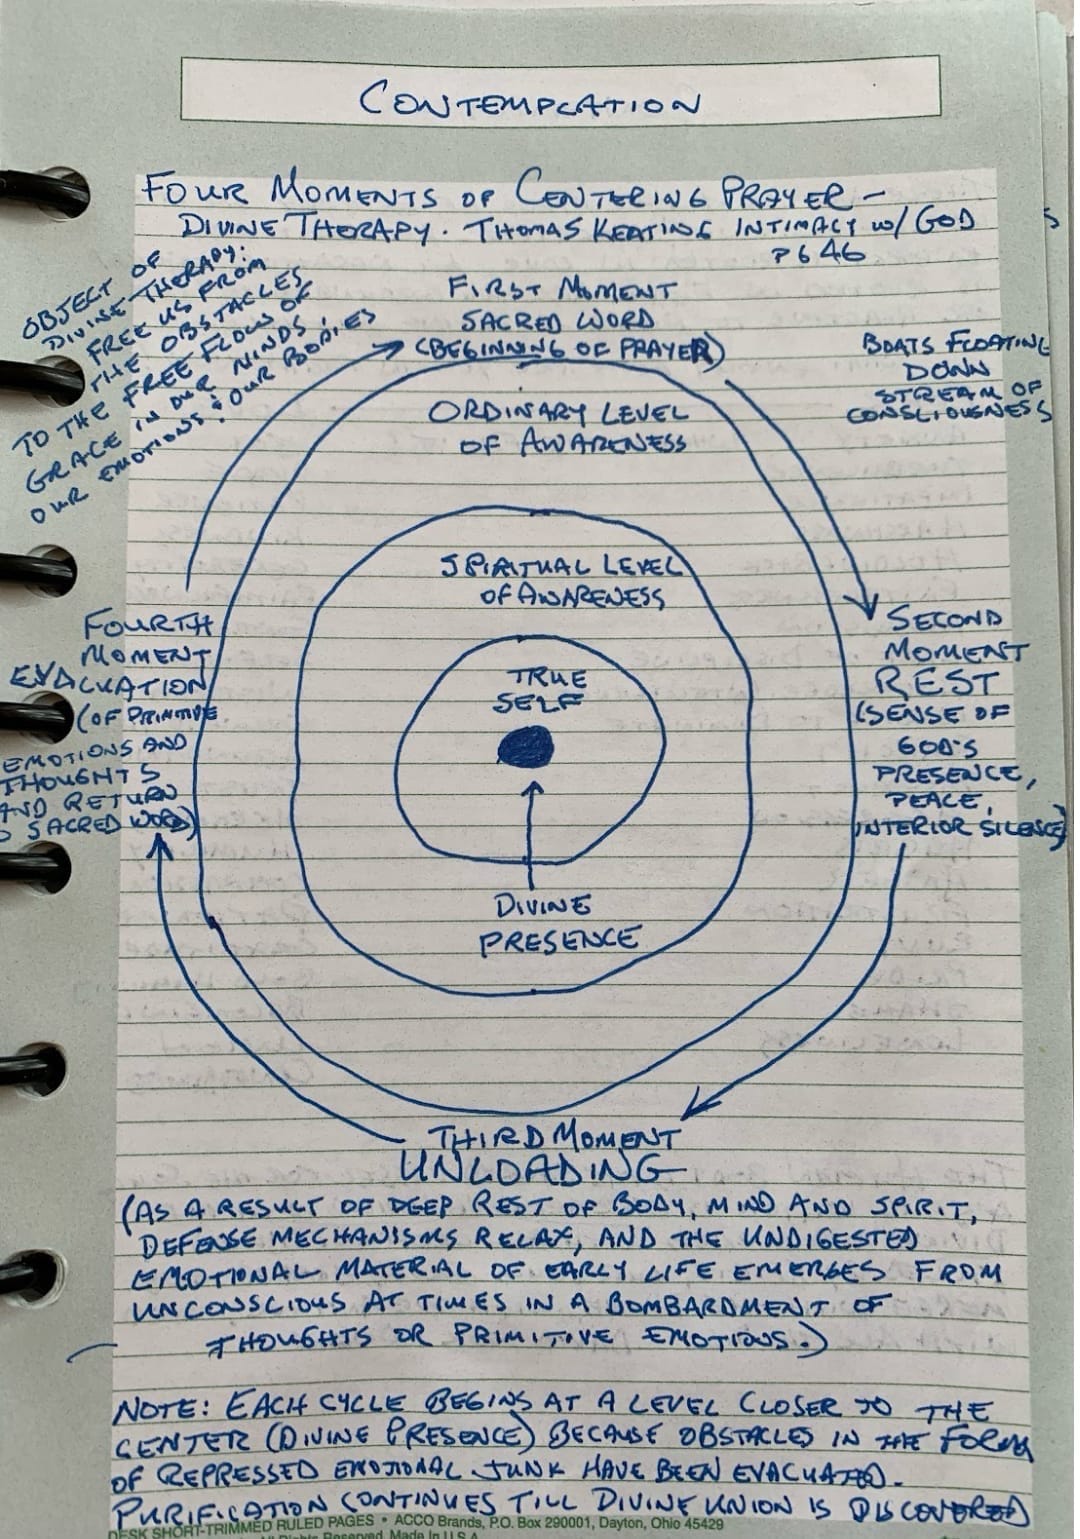 CONTEMPLATION
FOUR MOMENTS OF CENTERING PRAYER –
DIVINE THERAPY. THOMAS KEATING INTIMACY W/ GOD
PG 46
OBJECT OF
DIVINE THERAPY:
FREE US FROM
THE OBSTACLES
TO THE FREE FLOW OF
GRACE IN OUR MINDS,
OUR EMOTIONS & OUR BODIES
FIRST MOMENT
SACRED WORD
(BEGINNING OF PRAYER)
BOATS FLOATING
DOWN
STREAM OF
CONSCIOUSNESS
ORDINARY LEVEL
OF AWARENESS
SPIRITUAL LEVEL
OF AWARENESS
TRUE
SELF
DIVINE
PRESENCE
SECOND
MOMENT
REST
(SENSE OF
GOD'S
PRESENCE,
PEACE,
INTERIOR SILENCE)
THIRD MOMENT
UNLOADING
(AS A RESULT OF DEEP REST OF BODY, MIND AND SPIRIT,
DEFENSE MECHANISMS RELAX, AND THE UNDIGESTED
EMOTIONAL MATERIAL OF EARLY LIFE EMERGES FROM
UNCONSCIOUS AT TIMES IN A BOMBARDMENT OF
THOUGHTS OR PRIMITIVE EMOTIONS.)
FOURTH
MOMENT
EVACUATION
(OF PRIMITIVE
EMOTIONS AND
THOUGHTS
AND RETURN
SACRED WORD)
NOTE: EACH CYCLE BEGINS AT A LEVEL CLOSER TO THE
CENTER (DIVINE PRESENCE) BECAUSE OBSTACLES IN THE FORM
OF REPRESSED EMOTIONAL JUNK HAVE BEEN EVACUATED.
PURIFICATION CONTINUES TILL DIVINE UNION IS DISCOVERED
DESK SHORT-TRIMMED RULED PAGES • ACCO Brands, P.O. Box 290001, Dayton, Ohio 45429
All Rights Reserved. Made in U.S.A.